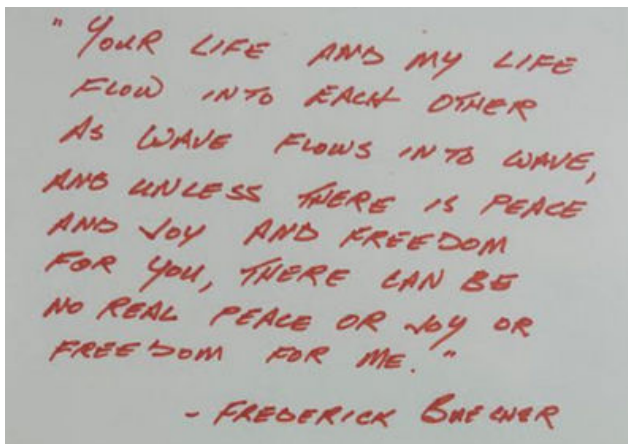 "YOUR LIFE AND MY LIFE
FLOW INTO EACH OTHER
AS WAVE FLOWS INTO WAVE,
AND UNLESS THERE IS PEACE
AND JOY AND FREEDOM
FOR YOU, THERE CAN BE
NO REAL PEACE OR JOY OR
FREEDOM FOR ME."
- FREDERICK BUECHNER